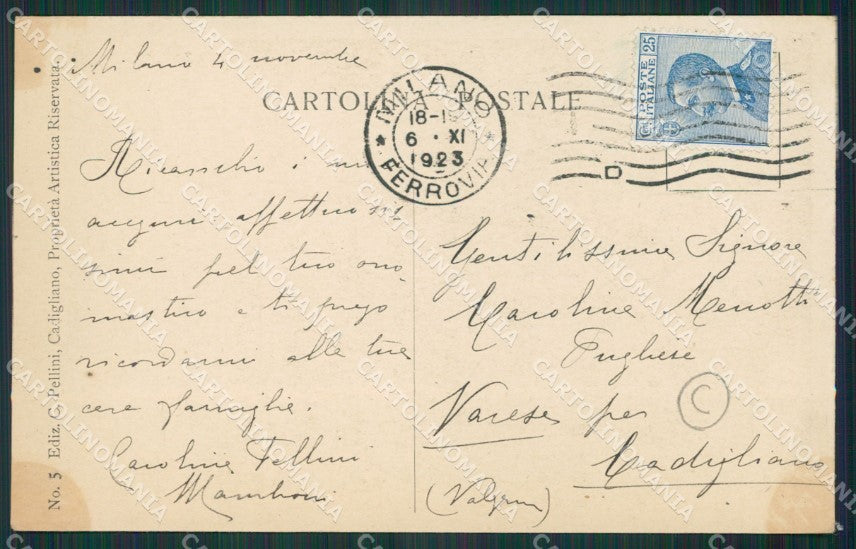 Milano 4 novembre
CARTOLINA POSTALE
MILANO
18-19
6 · XI
1923
FERROVIA
POSTE ITALIANE
25
C.
D
i
auguri affettuosis
simi pel tuo ono
mastico e ti prego
ricordarmi alla tua
cara famiglia.
Carolina Pellini
Gentilissima Signora
Carolina Menotti
Pugliese
Varese per
Cadigliano
C
No. 5 Ediz. C. Pellini, Cadigliano, Proprietà Artistica Riservata.
CARTOLINOMANIA